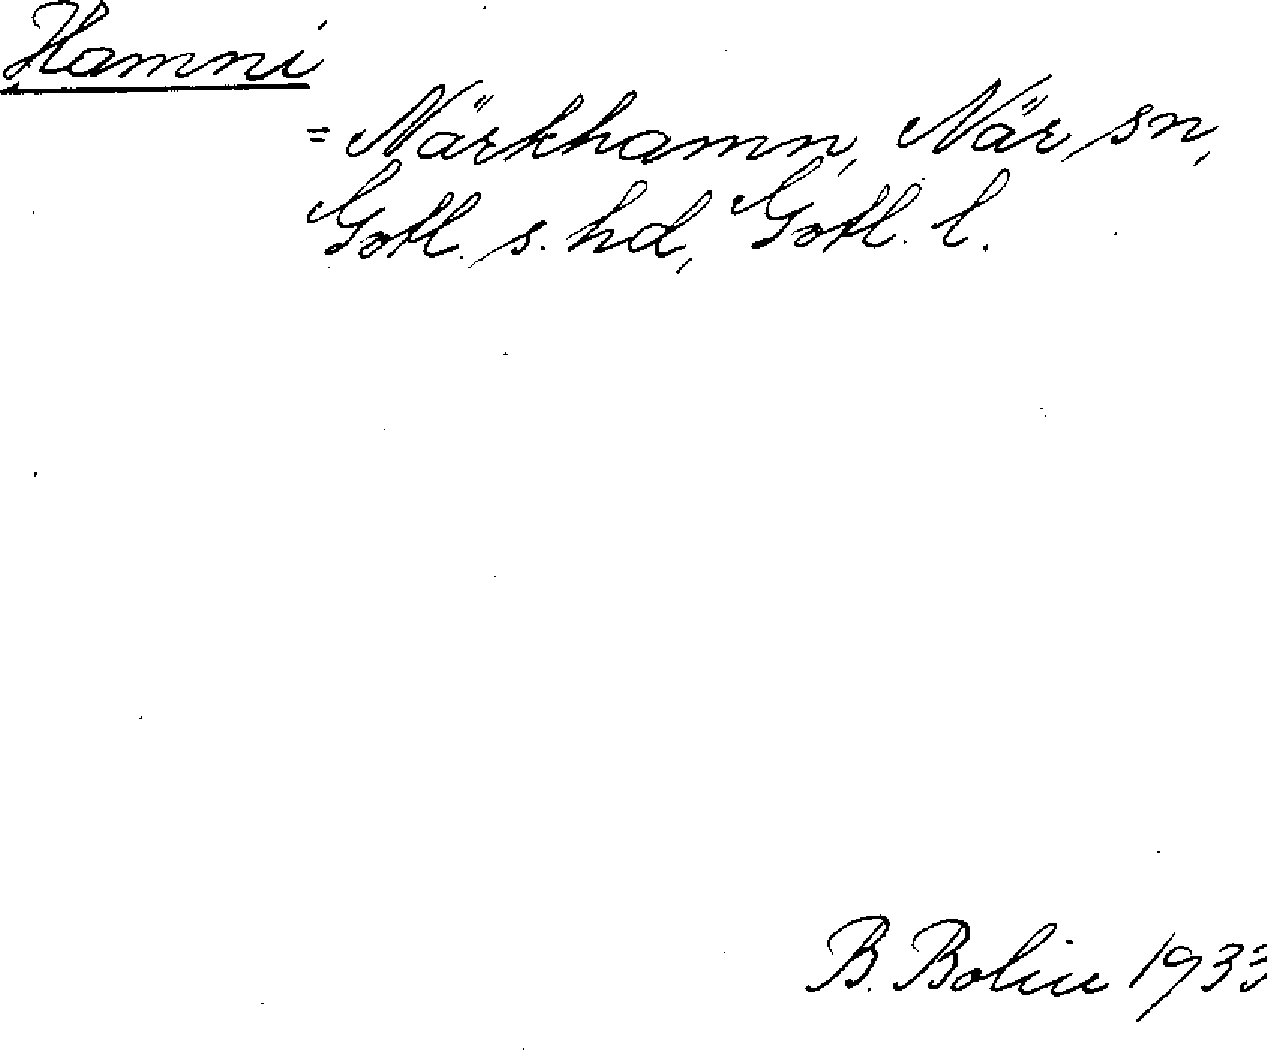 Hamni
= Närkhamn, När sn,
Gotl. s. hd, Gotl. l.
B. Bolin 1933